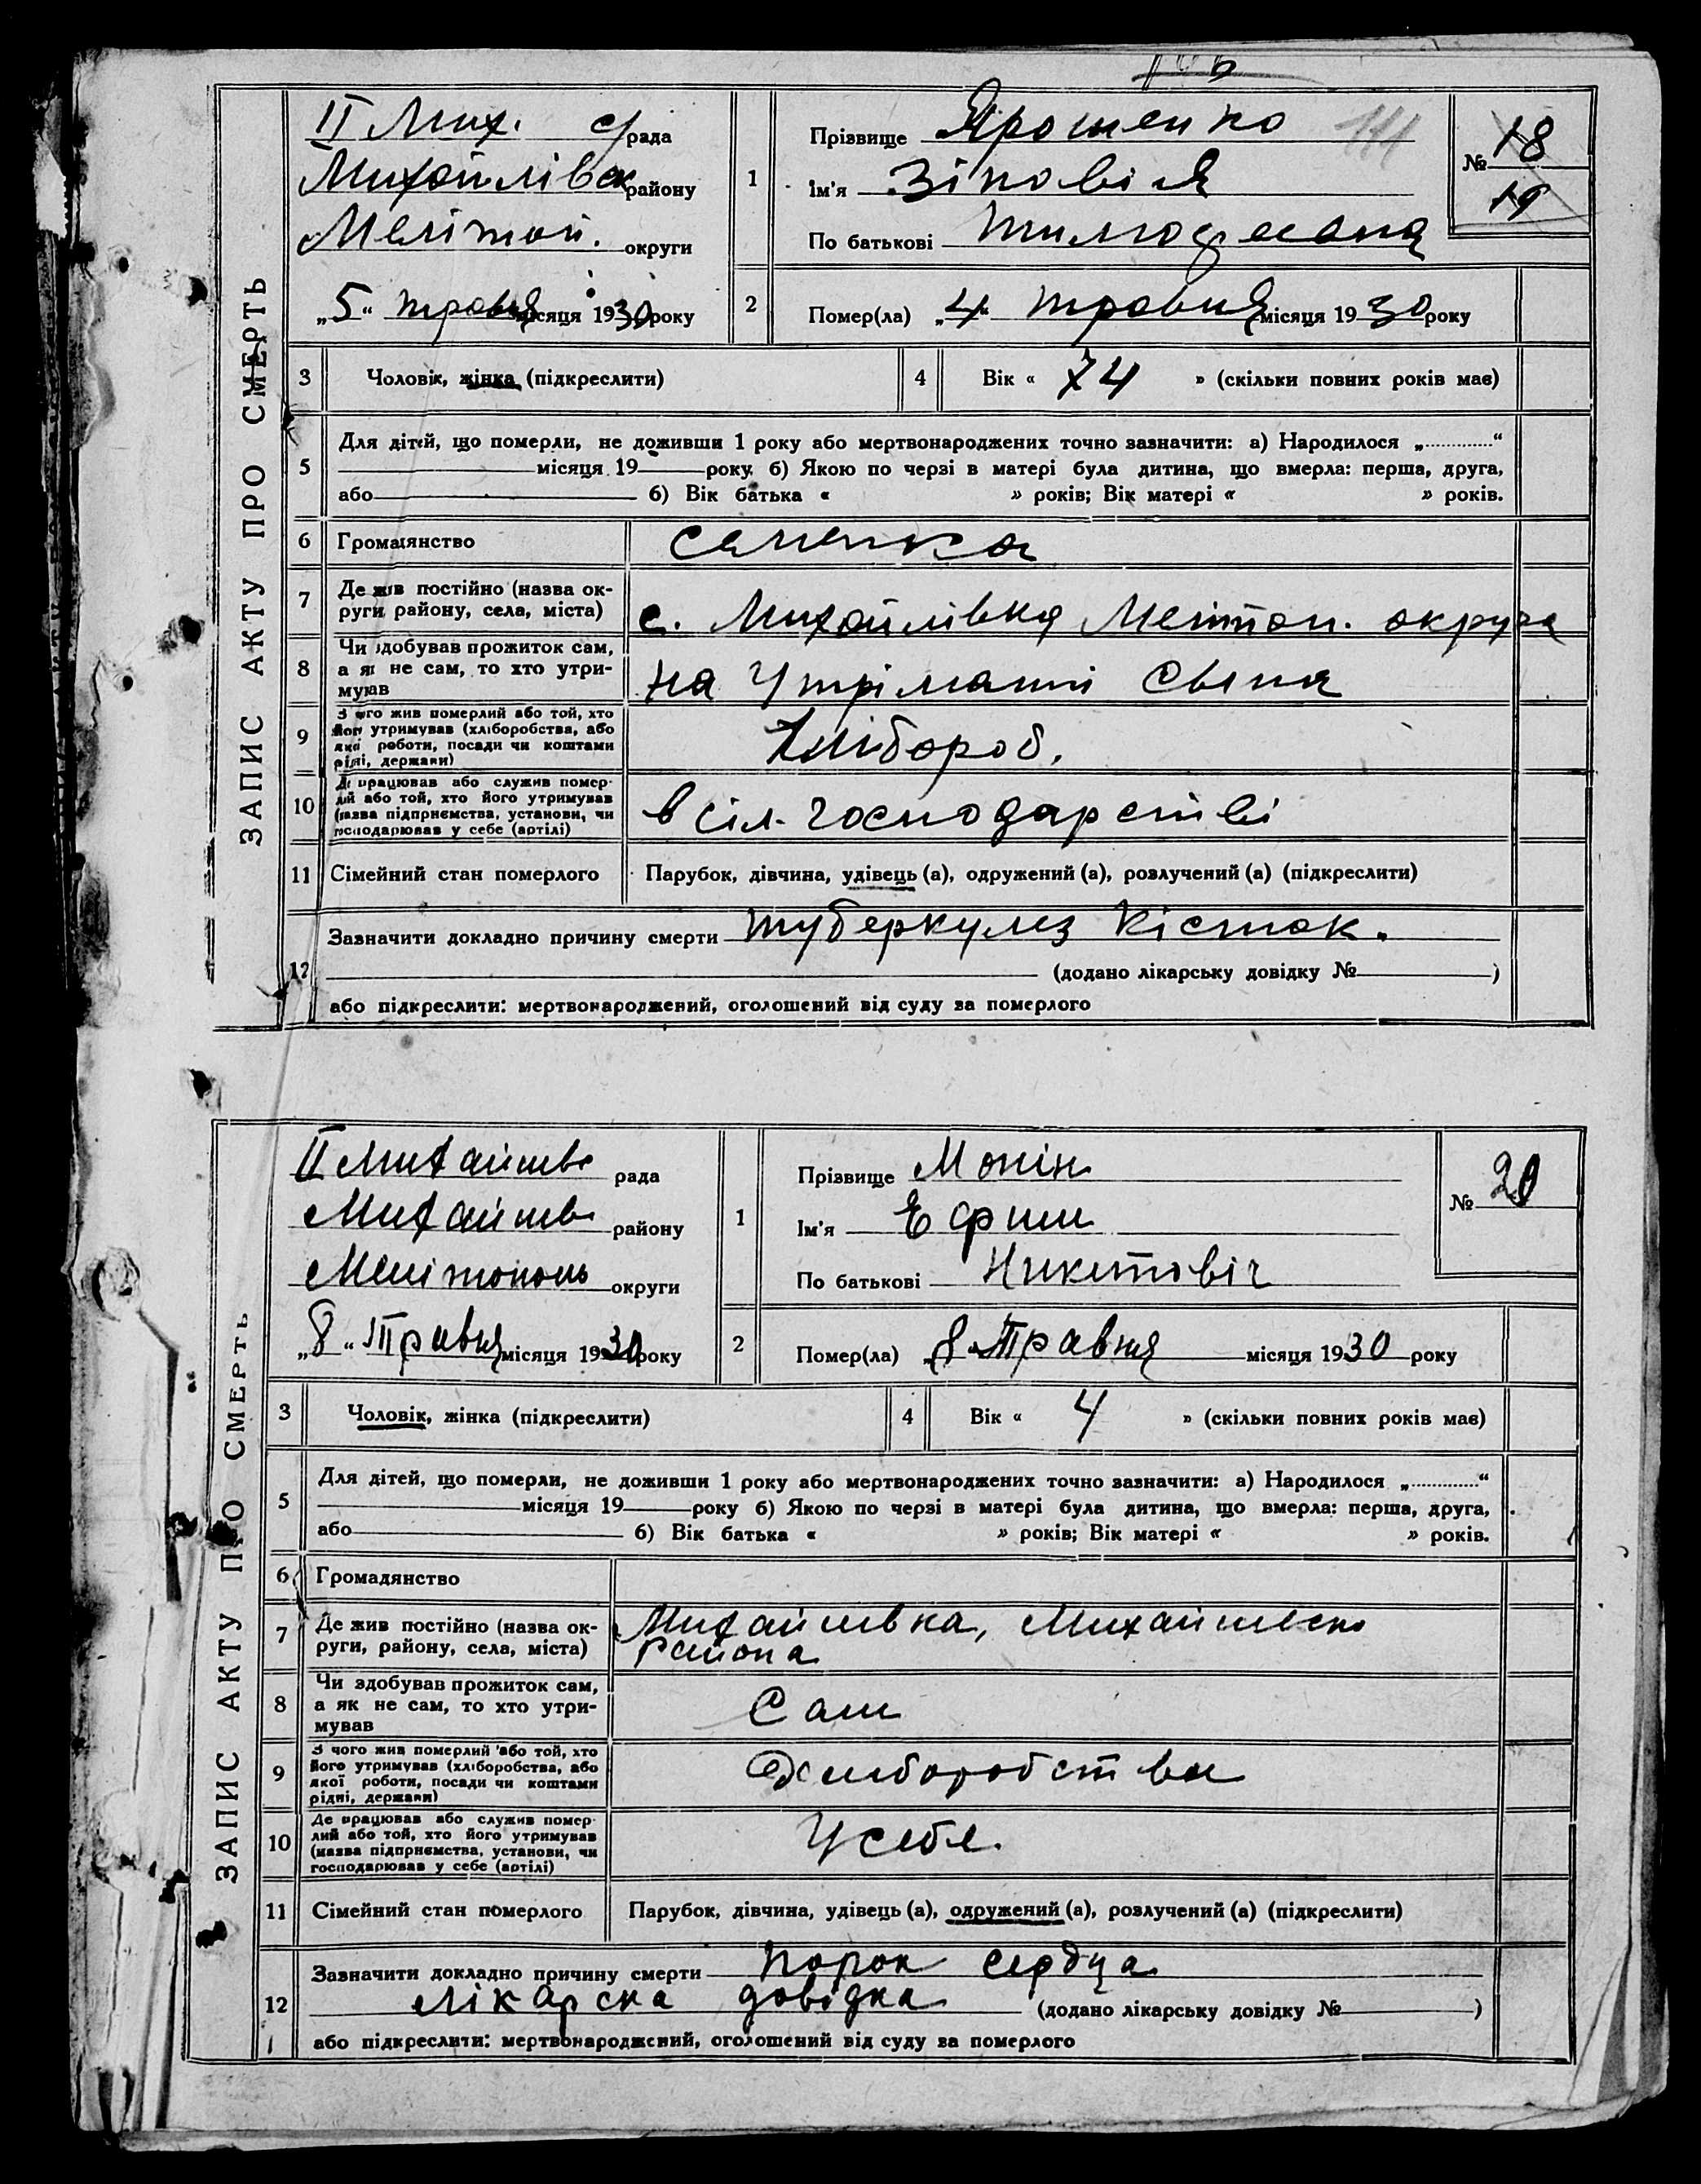 ЗАПИС АКТУ ПРО СМЕРТЬ
ІІ Мих. с/рада
Михайлівск району
Мелітоп. округи
„5“ травня місяця 1930 року
1
Прізвище Ярошенко
Ім'я Зіновія
По батькові Тимофеевна
№ 18
19
144
2
Помер(ла) „4“ травня місяця 1930 року
3 Чоловік, жінка (підкреслити)
4 Вік « 74 » (скільки повних років має)
5 Для дітей, що померли, не доживши 1 року або мертвонароджених точно зазначити: а) Народилося „............“
місяця 19 року. б) Якою по черзі в матері була дитина, що вмерла: перша, друга,
або б) Вік батька « » років; Вік матері « » років.
6 Громадянство
селянка
7 Де жив постійно (назва ок-
руги, району, села, міста)
с. Михайлівка Меліт топ. округа
8 Чи здобував прожиток сам,
а як не сам, то хто утри-
мував
на утріманні сына
9 З чого жив померлий або той, хто
його утримував (хліборобства, або
якої роботи, посади чи коштами
рідні, держави)
Хлібороб.
10 Де працював або служив помер-
лий або той, хто його утримував
(назва підприємства, установи, чи
господарював у себе (артілі)
в сіл-господарстві
11 Сімейний стан померлого
Парубок, дівчина, удівець (а), одружений (а), розлучений (а) (підкреслити)
12 Зазначити докладно причину смерти туберкулез кісток.
(додано лікарську довідку № )
або підкреслити: мертвонароджений, оголошений від суду за померлого
ЗАПИС АКТУ ПРО СМЕРТЬ
ІІ Михайлів рада
Михайлів району
Мелітополь округи
„8“ Травня місяця 1930 року
1
Прізвище Монін
Ім'я Ефим
По батькові Никитовіч
№ 20
2
Помер(ла) „8“ Травня місяця 1930 року
3 Чоловік, жінка (підкреслити)
4 Вік « 4 » (скільки повних років має)
5 Для дітей, що померли, не доживши 1 року або мертвонароджених точно зазначити: а) Народилося „............“
місяця 19 року б) Якою по черзі в матері була дитина, що вмерла: перша, друга,
або б) Вік батька « » років; Вік матері « » років.
6 Громадянство
7 Де жив постійно (назва ок-
руги, району, села, міста)
Михайлівка, Михайлівско
района
8 Чи здобував прожиток сам,
а як не сам, то хто утри-
мував
Сам
9 З чого жив померлий або той, хто
його утримував (хліборобства, або
якої роботи, посади чи коштами
рідні, держави)
Хлиборобства
10 Де працював або служив помер-
лий або той, хто його утримував
(назва підприємства, установи, чи
господарював у себе (артілі)
У себе.
11 Сімейний стан померлого
Парубок, дівчина, удівець (а), одружений (а), розлучений (а) (підкреслити)
12 Зазначити докладно причину смерти порок сердца
лікарска довідка (додано лікарську довідку № )
або підкреслити: мертвонароджений, оголошений від суду за померлого